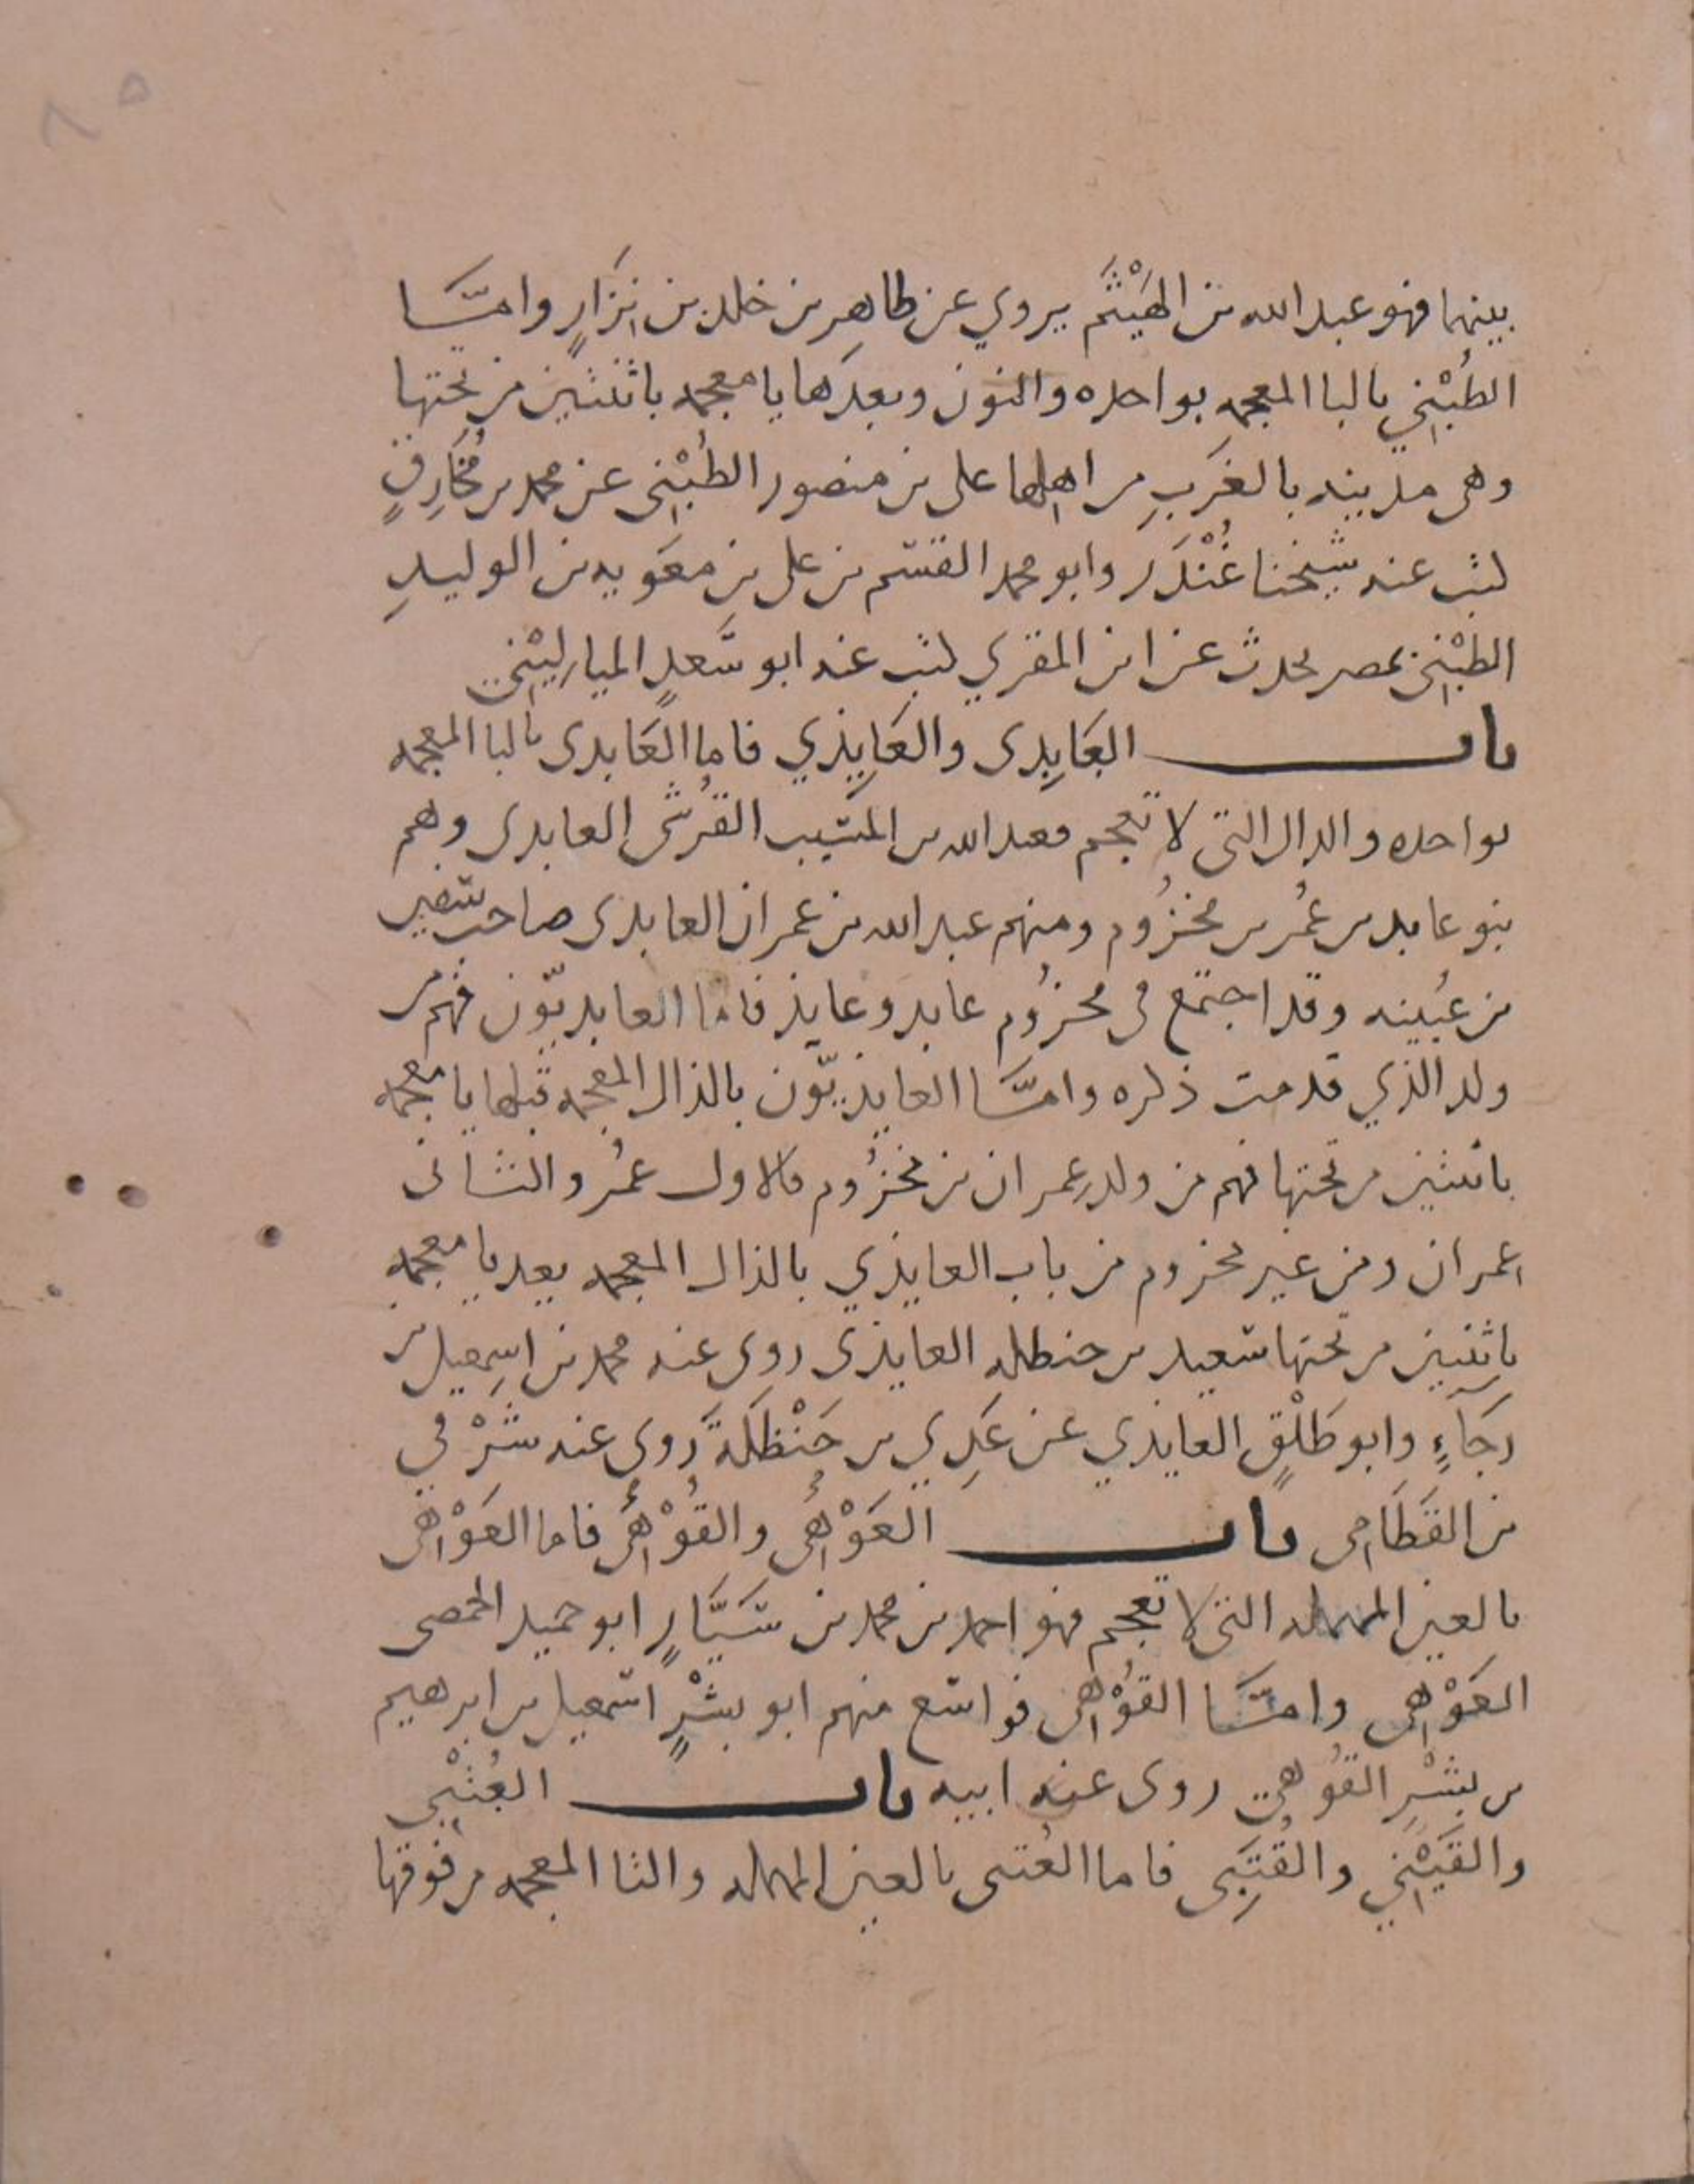 ٨٥
بينهما فهو عبد الله بن الهَيْثَم يروي عن طاهر بن خلد بن نِزَارٍ وامّا
الطُبْنِي بالبا المعجمه بواحده والنون وبعدَها يا معجمه باثنتين من تحتها
وهى مدينه بالغَربِ من اهلها على بن منصور الطُبْنِى عن محمد بن مُخَارِقٍ
كتب عنه شيخنا غُنْدَر وابو محمد القسم بن على بن معَويه بن الوليدِ
الطبْنِى بمصر يحدث عن ابن المقري كتب عنه ابو سَعدٍ الماليْنِي
باب العَابِدى والعَايِذي فاما العَابدى بالبا المعجمه
بواحده والدال التى لا تعجم فعبد الله بن المسَيب القُرشى العابدى وهم
بنو عابد بن عمُر بن مخزُوم ومنهم عبد الله بن عمران العابدى صاحب سفين
بن عُيينه وقد اجتمع فى مخزُوم عابد وعايذ فاما العابديّون فهم من
ولد الذي قدمت ذكره وامّا العايذيّون بالذال المعجمه قبلها يا معجمه
باثنتين من تحتها فهم من ولد عمران بن مخزُوم فالاول عمُر والثانى
عمران ومن غير مخزوم من باب العايذي بالذال المعجمه بعد يا معجمه
باثنتين من تحتها سَعيد بن حنطله العايذى روى عنه محمد بن اسِمعيل بن
رَجَآءٍ وابو طَلْقٍ العايذي عن عَدِي بن حَنْظَلَةَ رَوى عنه شَرْقي
بن القَطَامِى باب العَوْهِى والقُوْهِى فاما العَوْهِى
بالعين المهمله التى لا تعجم فهو احمد بن محمد بن سَيَّارٍ ابو حميد الحمصى
العَوْهِى وامَّا القُوْهِى فواسع منهم ابو بِشْرٍ اسمعيل بن ابرهيم
بن بِشْرِ القُوهِي روى عنه ابيه باب العُتْبِي
والقَيْنِي والقُتَبِى فاما العُتبى بالعين المهمله والتا المعجمه من فوقها